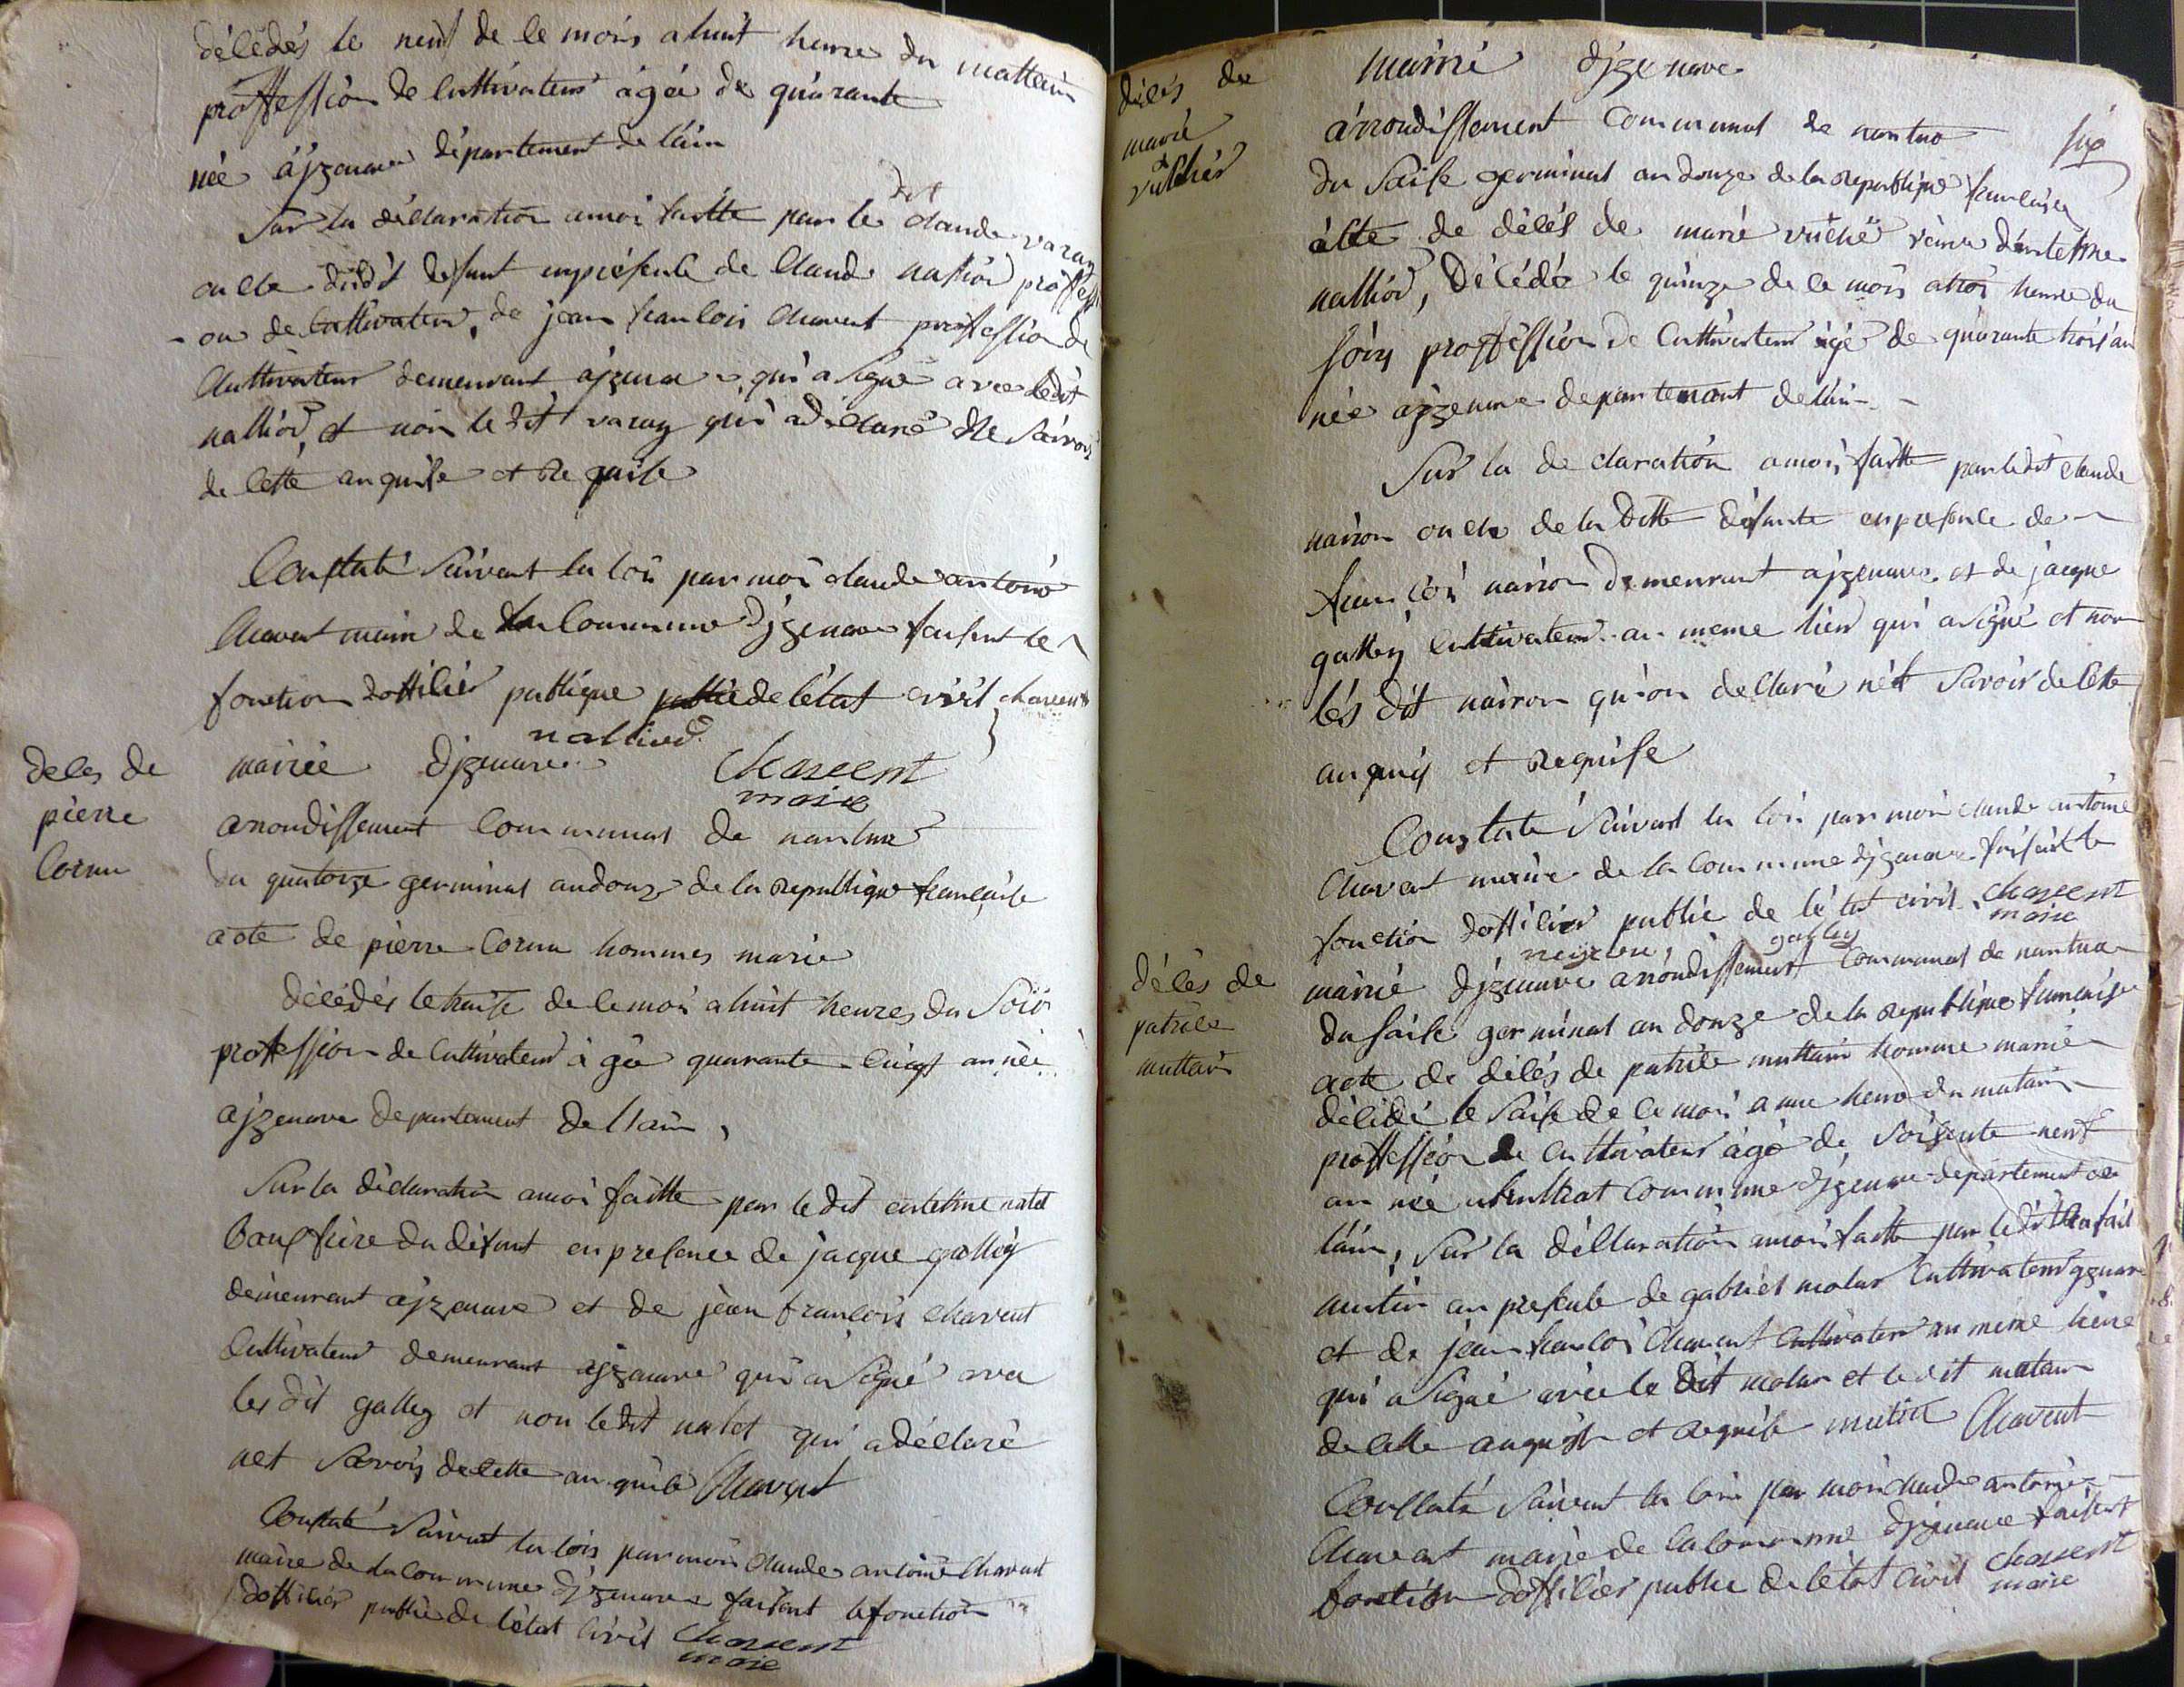 délédés le neuf de le mois a huit heure du mattein
proffession de Cultivateur agée de quarante
née ájzenave département de láin
Sur la déclaration amoi faitte par le dit Claude varay
oncle dudit defunt en présente de Claude nalliod proffessi
- on de Cultivateur, de jean francois Chavent proffession de
Cultivateur demeurant ajzenave qui a signé avec ledit
nalliod, et non le dit varay qui a déclaré ne savoir
de cette anquise et Requise
Constaté Suivant la loi par moi claude antoine
Chavent maire de la Commune djzenave faisant le
fonction dofficier publique de létat civil chavent
nalliod
déles de
pierre
Cornu
mairie djzenave
Chavent
maire
arrondissement Communal de nantua
du quatorze germinal an douze de la Republique francaise
acte de pierre Cornu hommes marié
délédés le traise de le moi a huit heures du Soir
proffession de Cultivateur à gée quarante cinq an née
ajzenave departement de l'ain,
Sur la déclaration amoi faitte par le dit antelme natet
bauf frère du défunt en presence de jacque galley
demeurant ajzenave et de jean francois Chavent
Cultivateur demeurant ajzenave qui a Signé avec
les dit galley et non le dit natet qui a déclaré
net Savoir de cette anquise Chavent
Constaté Suivant la lois par moi Claude antoine Chavent
maire de la Commune djzenave faisant le fonction
dofficier public de létat Civil Chavent
maire
délés de
marie
vuchér
mairié djzenave
six
árrondissement Communal de nantua
du Saise germinal an douze de la Republique francaise
acte de délés de marie vuché veuve dantelme
nalliod, Délédée le quinze de le mois a trois heure du
soir proffession de Cultivateur agé de quarante trois an
née ajzenave departement deláin
Sur la de claration amoi faitte par le dit claude
nairon oncle de la ditte défunte en presence de
francoi nairon Demeurant ajzenave et de jacque
galley Cultivateur au meme lieu qui a signé et non
les dit nairon qui on declaré nét Savoir de cette
anquis et Requise
Constaté Suivant la loi par moi claude antoine
Chavent maire de la Commune djzenave faisant le
fonction dofficier public de létat civil Chavent
maire
galley
délés de
patrice
muttin
mairié djzenave arrondissement Communal de nantua
du saise germinal an douze de la republique francaise
acte de délés de patrice muttin homme marié
délédé le Saise de le moi a une heure du matain
proffession de Cultivateur agé de Soisente neuf
an née Commune djzenave departement de
láin, Sur la déclaration amoi faitte par le dit
mutin an presente de gabriel molar Cultivateur jzenave
et de jean francoi Chavent Cultivateur au méme lieu
qui a signé avec le dit molar et le dit
de cette anquise et requise mutin Chavent
Constaté Suivent la loi par moi claude antoine
Chavent maire de la Commune djzenave faisent
fonction dofficier public de létat Civil Chavent
maire